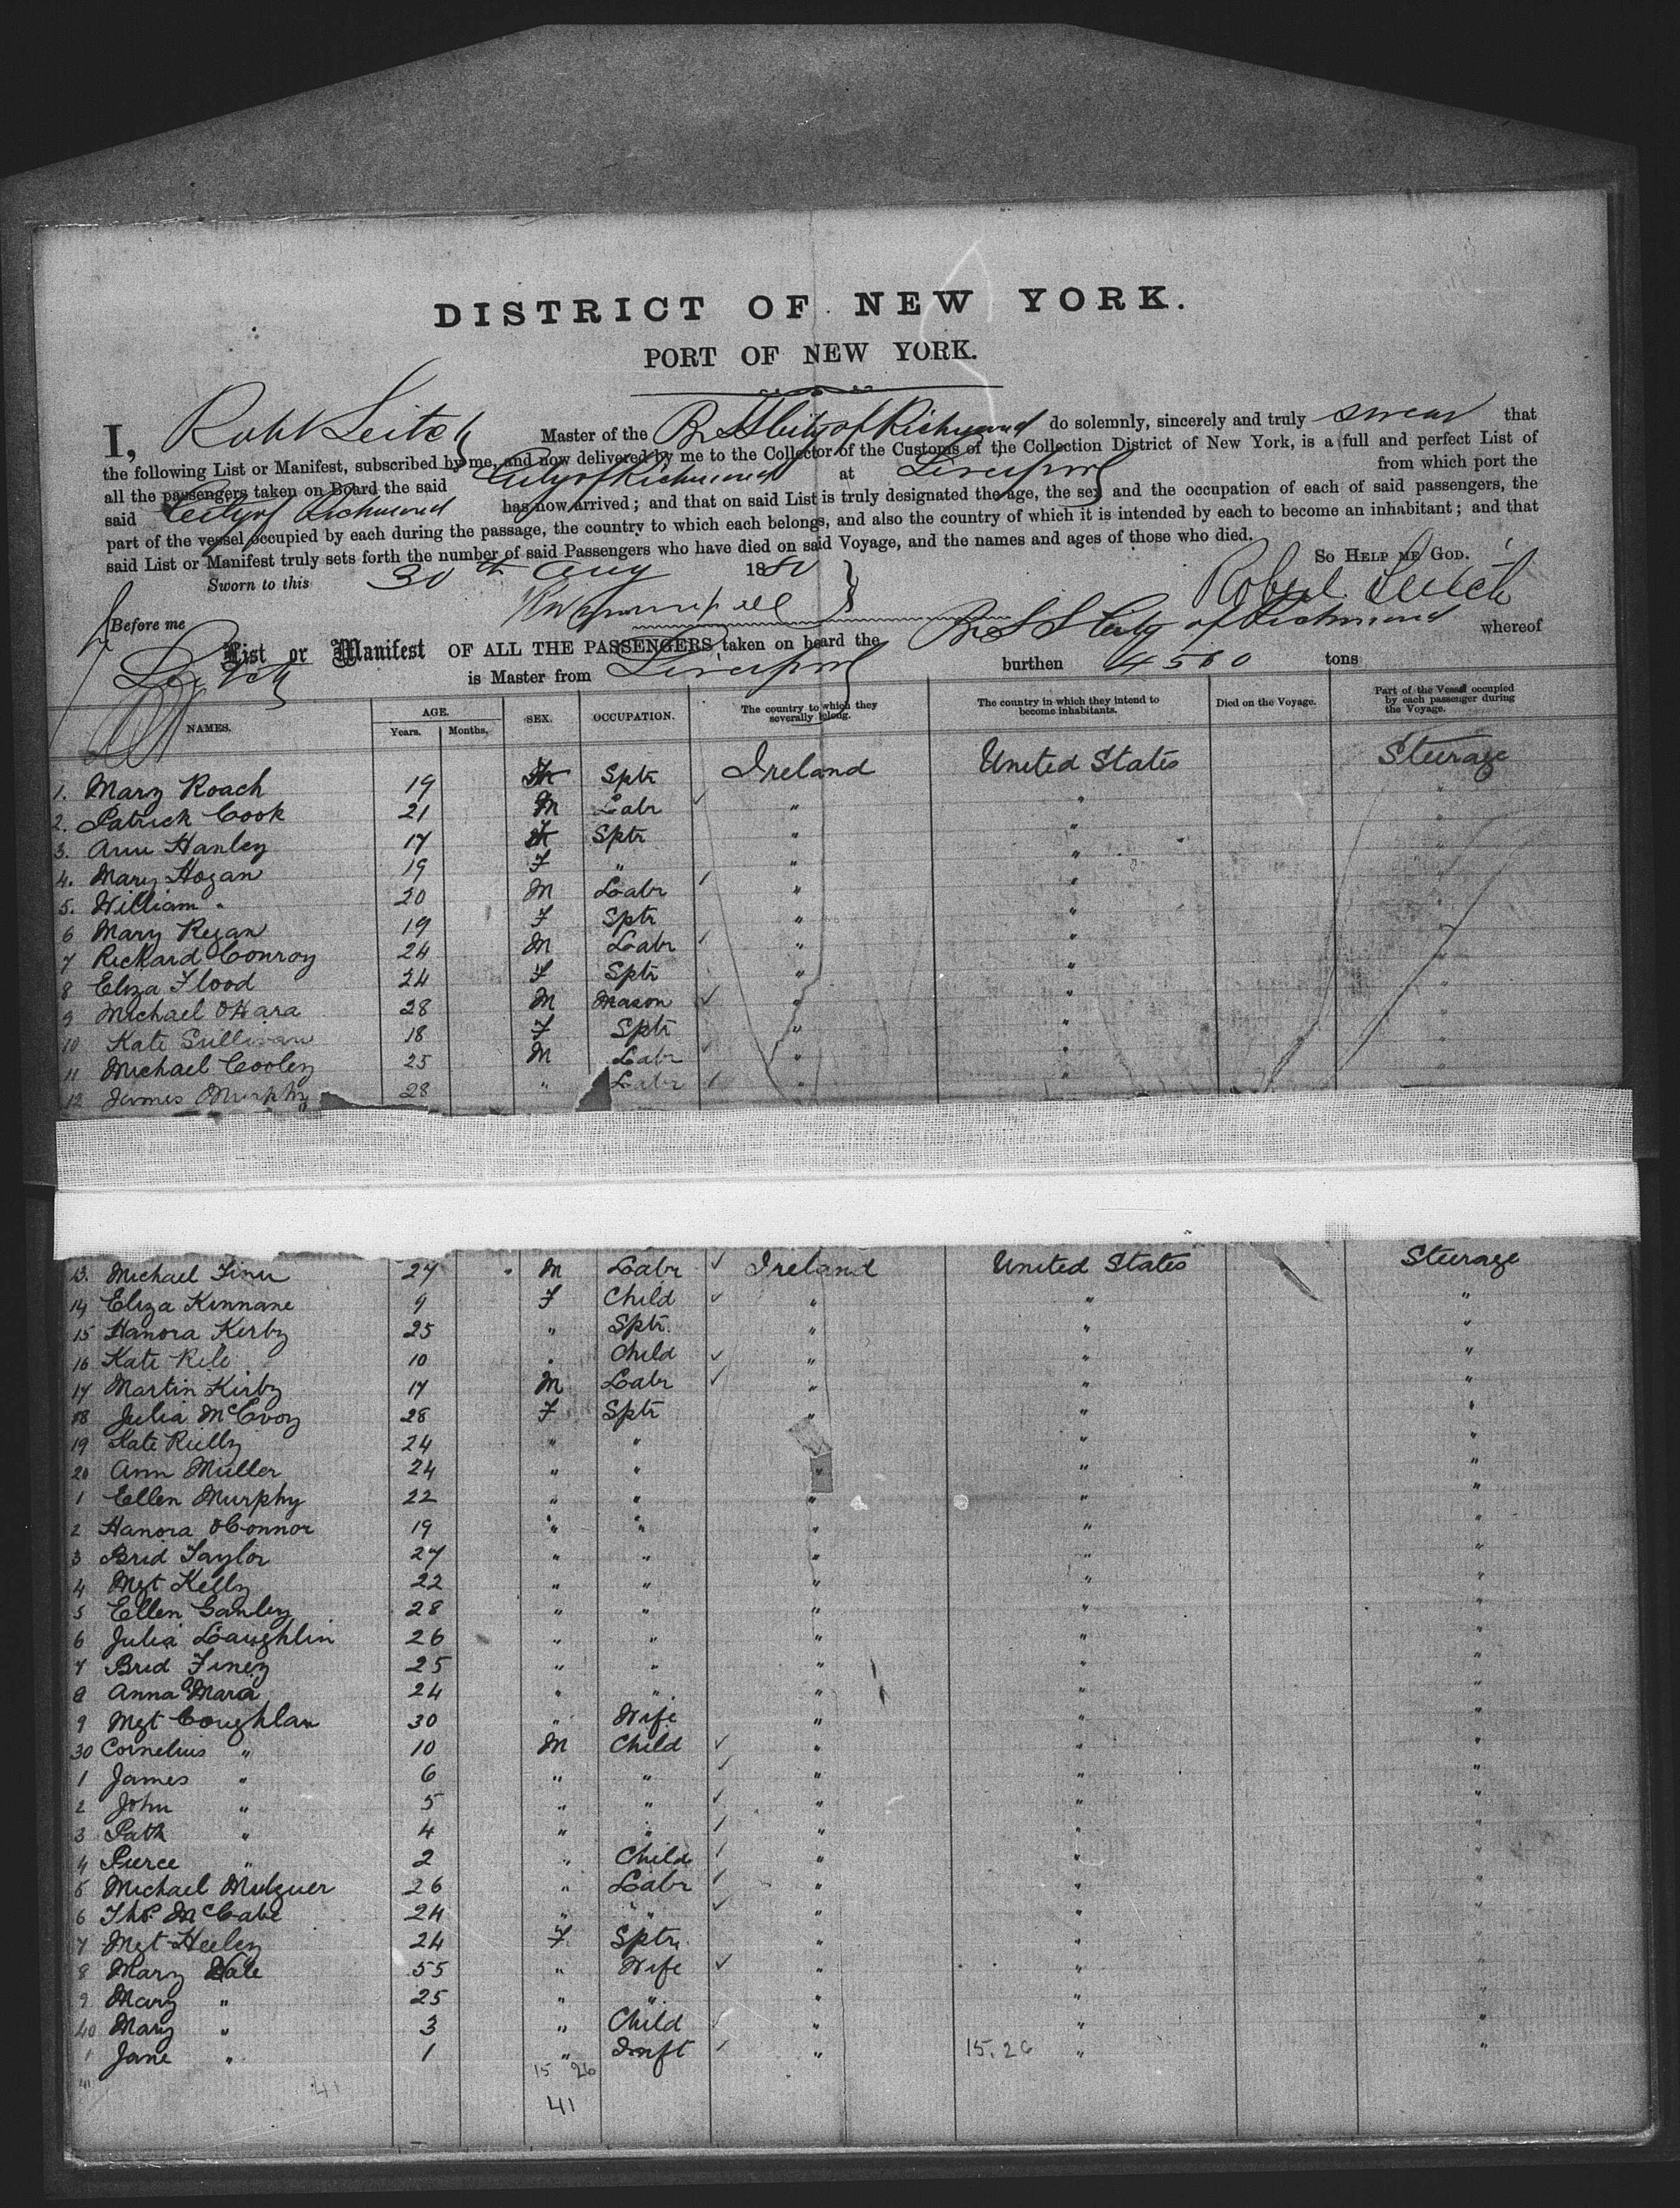 DISTRICT OF NEW YORK.
PORT OF NEW YORK.
I, Robt Leitch Master of the Br SS City of Richmond do solemnly, sincerely and truly swear that
the following List or Manifest, subscribed by me, and now delivered by me to the Collector of the Customs of the Collection District of New York, is a full and perfect List of
all the passengers taken on Board the said City of Richmond at Liverpool from which port the
said City of Richmond has now arrived; and that on said List is truly designated the age, the sex and the occupation of each of said passengers, the
part of the vessel occupied by each during the passage, the country to which each belongs, and also the country of which it is intended by each to become an inhabitant; and that
said List or Manifest truly sets forth the number of said Passengers who have died on said Voyage, and the names and ages of those who died.
So Help me God.
Sworn to this 30th Aug 1880
Robert Leitch
Before me
List or Manifest OF ALL THE PASSENGERS taken on board the Br SS City of Richmond whereof
Leitch is Master from Liverpool burthen 4580 tons
NAMES. AGE. Years. Months. SEX. OCCUPATION. The country to which they severally belong. The country in which they intend to become inhabitants. Died on the Voyage. Part of the Vessel occupied by each passenger during the Voyage.
1. Mary Roach 19 F Sptr Ireland United States Steerage
2. Patrick Cook 21 M Labr " " "
3. Ann Hanley 17 F Sptr " " "
4. Mary Hogan 19 F " " " "
5. William " 20 M Labr " " "
6 Mary Regan 19 F Sptr " " "
7 Rickard Conroy 24 M Labr " " "
8 Eliza Flood 24 F Sptr " " "
9 Michael OHara 28 M Mason " " "
10 Kate Sullivan 18 F Sptr " " "
11 Michael Cooley 25 M Labr " " "
12 James Murphy 28 " Labr " " "
13. Michael Finn 27 M Labr Ireland United States Steerage
14 Eliza Kinnane 9 F Child " " "
15 Hanora Kerby 25 " Sptr " " "
16 Kate 10 " Child " " "
17 Martin Kirby 17 M Labr " " "
18 Julia McEvoy 28 F Sptr " " "
19 Kate Rielly 24 " " " " "
20 Ann Muller 24 " " " " "
1 Ellen Murphy 22 " " " " "
2 Hanora OConnor 19 " " " " "
3 Brid Taylor 27 " " " " "
4 Mgt Kelly 22 " " " " "
5 Ellen Ganley 28 " " " " "
6 Julia Laughlin 26 " " " " "
7 Brid Finey 25 " " " " "
8 Anna OMara 24 " " " " "
9 Mgt Coughlan 30 " Wife " " "
30 Cornelius " 10 M Child " " "
1 James " 6 " " " " "
2 John " 5 " " " " "
3 Patk " 4 " " " " "
4 Pierce " 2 " Child " " "
5 Michael 26 " Labr " " "
6 Thos McCabe 24 " " " " "
7 Mgt Heeley 24 F Sptr " " "
8 Mary Hale 55 " Wife " " "
9 Mary " 25 " " " " "
40 Mary " 3 " Child " " "
1 Jane " 1 " Inft " 15.26 " "
41 41 15 26
41